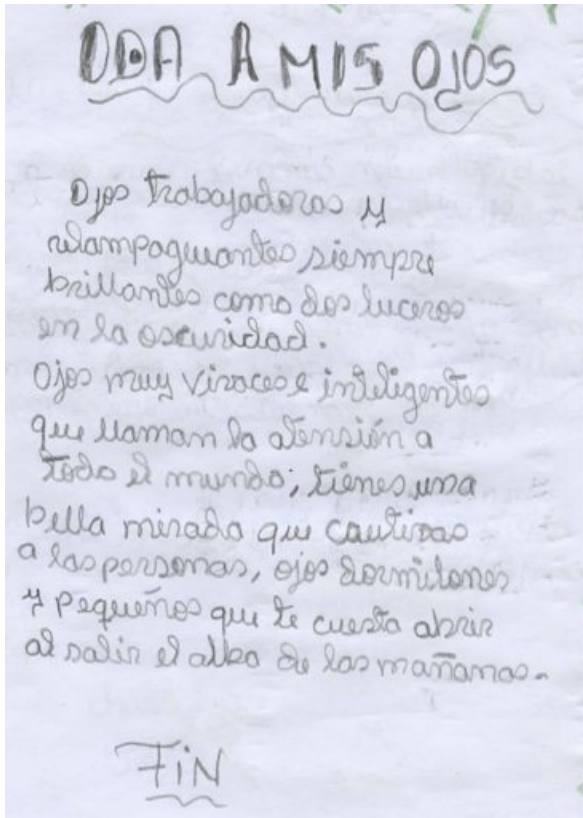 ODA A MIS OJOS
Ojos trabajadores y
relampagueantes siempre
brillantes como dos luceros
en la oscuridad.
Ojos muy vivaces e inteligentes
que llaman la atensión a
todo el mundo; tienes una
bella mirada que cautivas
a las personas, ojos dormilones
y pequeños que te cuesta abrir
al salir el alba de las mañanas.
FiN